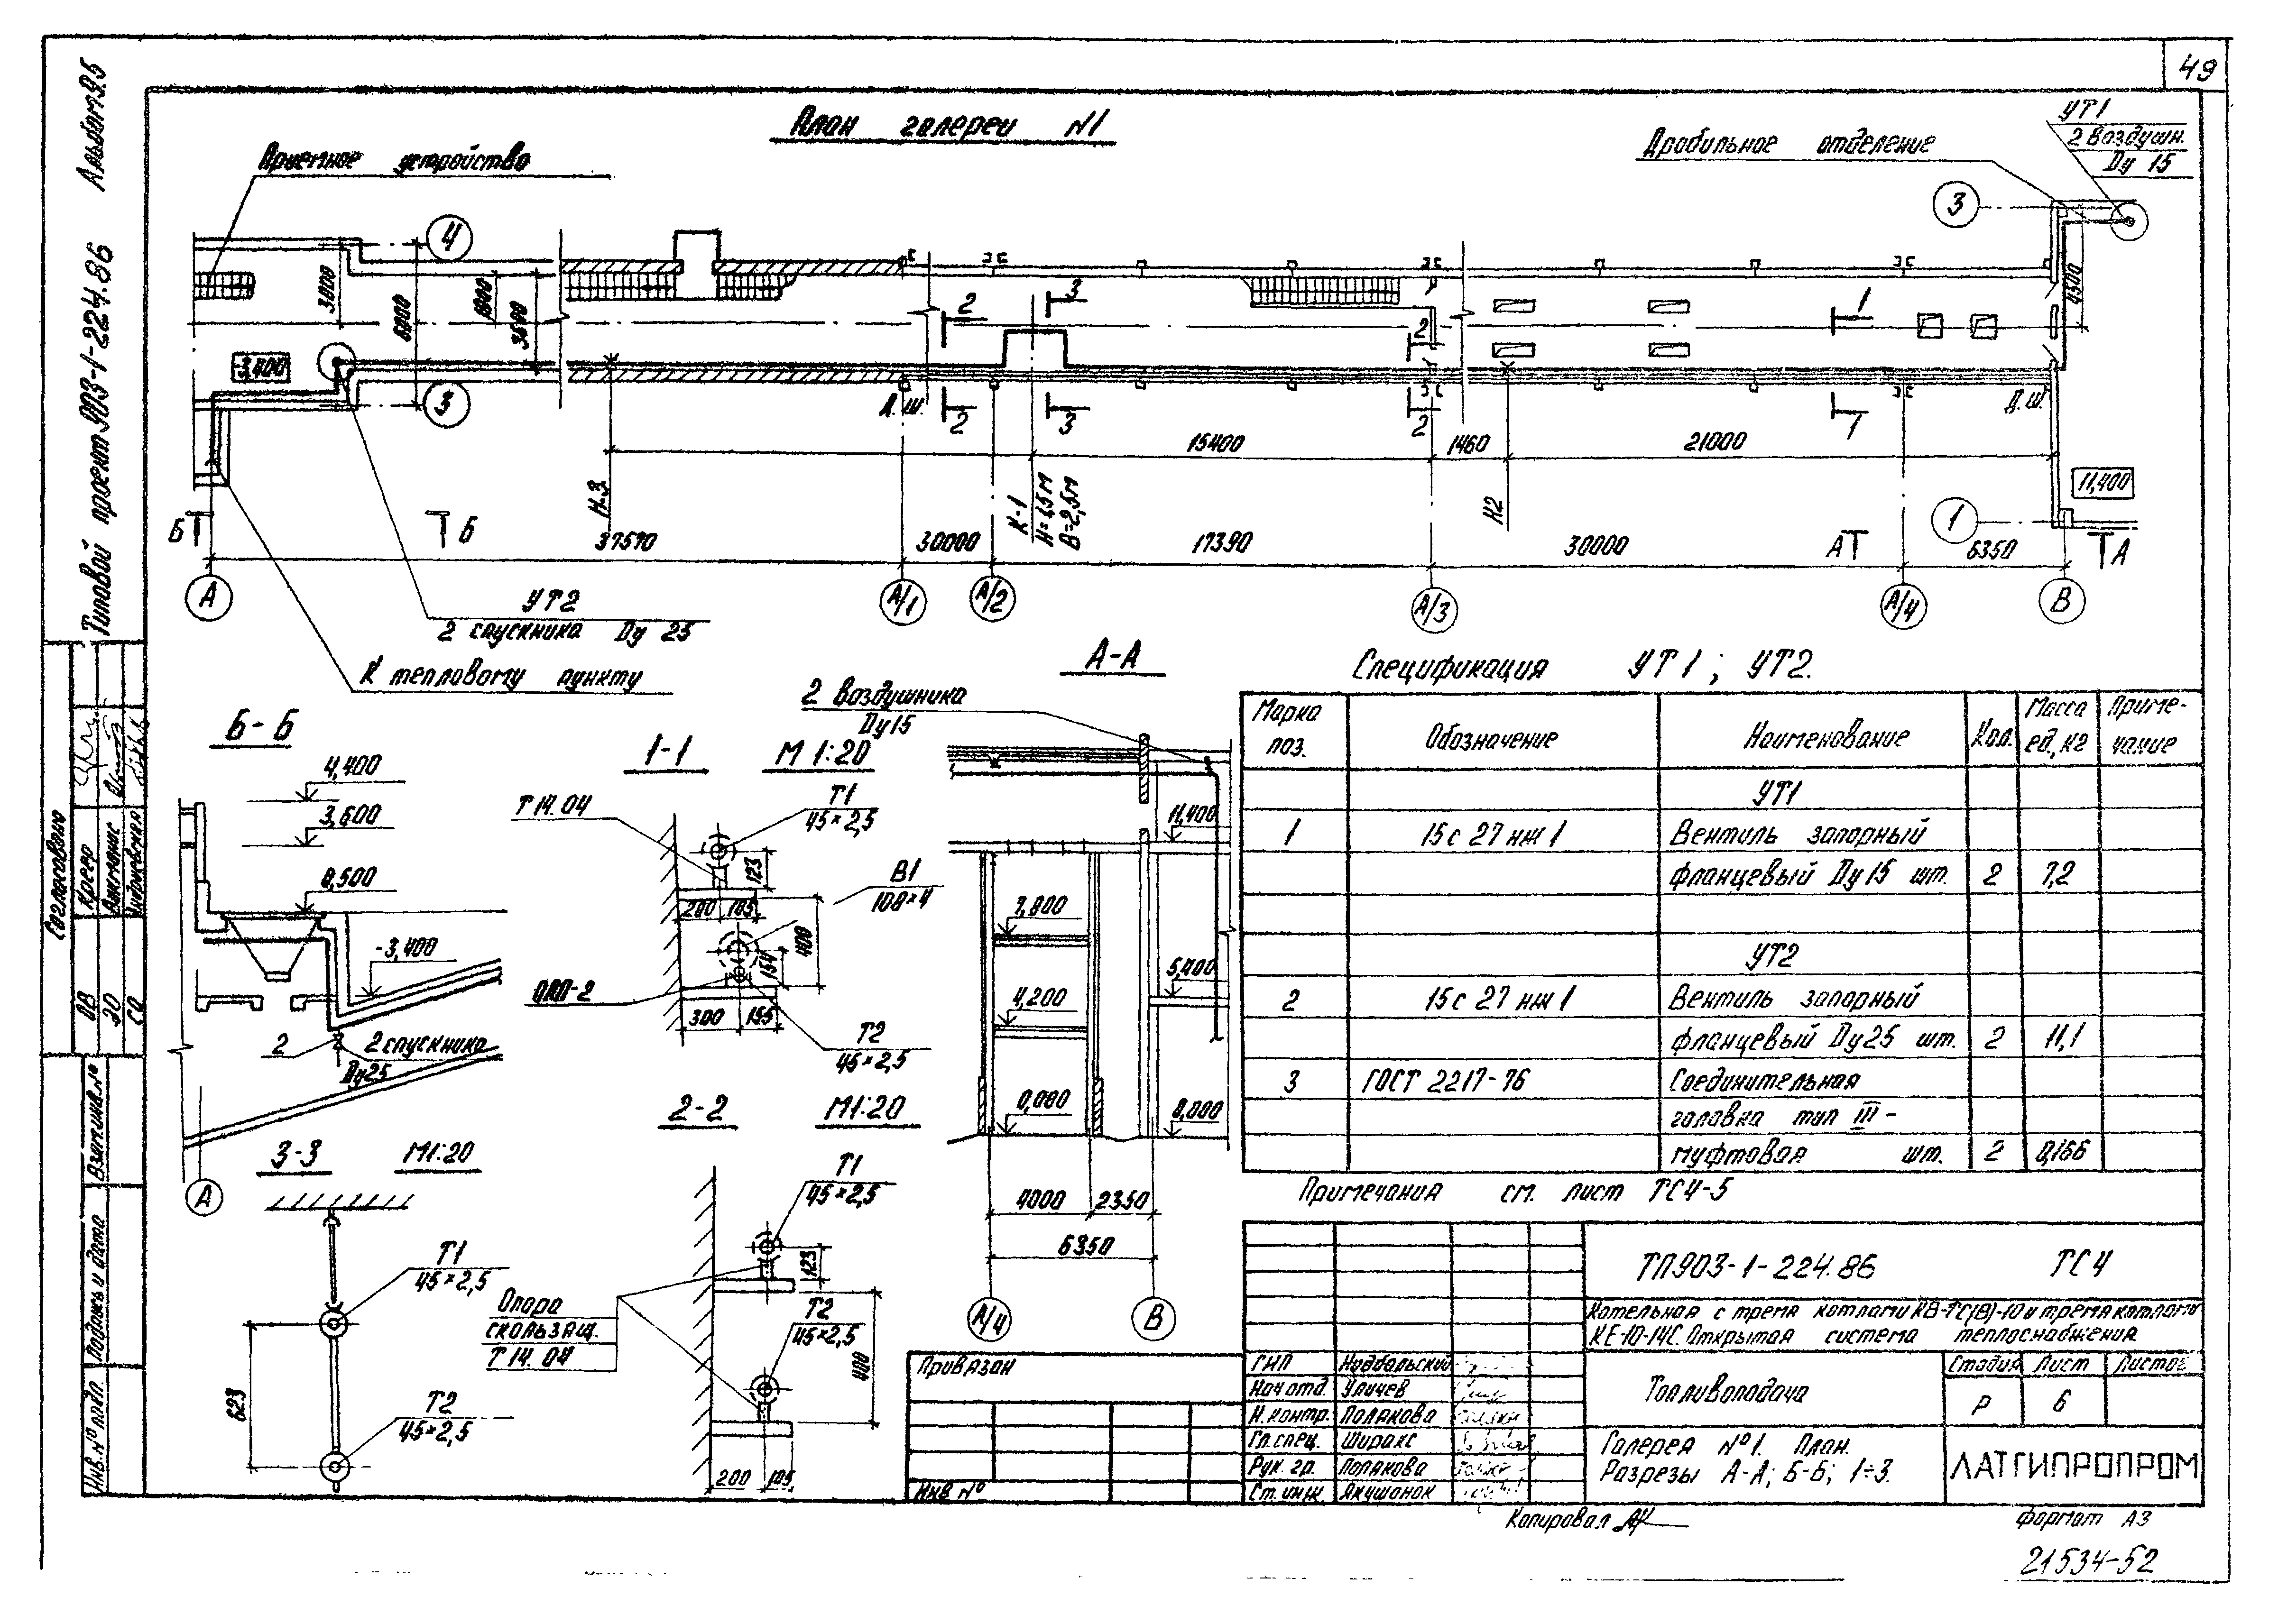 49
Альбом 9.5
Типовой проект 903-1-224.86
План галереи N1
Приемное устройство
Дробильное отделение
УТ1
2 воздушн.
Ду 15
4
3
3
1
3000
6000
1800
3600
4500
-3,400
11,400
2
3
2
1
Д.ш.
2
3
2
1
Д.ш.
15400
1460
21000
Н.3
К-1
Н=1,5м
В=2,5м
Н2
Б
Б
А
А
37570
30000
17390
30000
6350
А
А/1
А/2
А/3
А/4
В
УТ2
2 спускника Ду 25
К тепловому пункту
Б-Б
4,400
3,600
0,500
-3,400
2
2 спускника
Ду25
А
1-1 М 1:20
Т 14.04
Т1
45×2,5
123
В1
108×4
200
105
400
154
ОПП-2
300
155
Т2
45×2,5
2-2 М1:20
Т1
45×2,5
123
Опора
скользящ.
Т 14.04
Т2
45×2,5
400
200
105
3-3 М1:20
Т1
45×2,5
623
Т2
45×2,5
А-А
2 воздушника
Ду15
11,400
7,800
5,400
4,200
0,000
0,000
4000
2350
6350
А/4
В
Спецификация УТ1; УТ2.
Марка поз.
Обозначение
Наименование
Кол.
Масса ед, кг
Примечание
УТ1
1 15с 27 нж 1 Вентиль запорный
фланцевый Ду15 шт. 2 7,2
УТ2
2 15с 27 нж 1 Вентиль запорный
фланцевый Ду25 шт. 2 11,1
3 ГОСТ 2217-76 Соединительная
головка тип III-
муфтовая шт. 2 0,166
Примечания см. лист ТС4-5
ТП903-1-224.86 ТС4
Котельная с тремя котлами КВ-ТС(В)-10 и тремя котлами
КЕ-10-14С. Открытая система теплоснабжения
Топливоподача
Стадия Лист Листов
Р 6
Галерея №1. План.
Разрезы А-А; Б-Б; 1÷3.
ЛАТГИПРОПРОМ
Привязан
Инв №
ГИП Нидбальский
Нач отд. Уличев
Н. контр. Полякова
Гл. спец. Ширакс
Рук. гр. Полякова
Ст. инж. Якушонок
Согласовано
ОВ Креер
ЭО
СО
Взам инв. №
Подпись и дата
Инв. № подл.
Копировал
Формат А3
21534-52